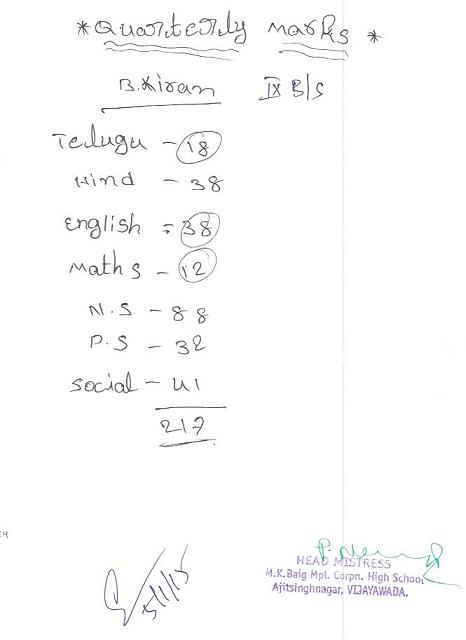 *Quarterly marks*
B.Kiran IX B/S
Telugu - 18
Hind - 38
English = 38
Maths - 12
N.S - 88
P.S - 32
Social - 41
217
5/1/15
HEAD MISTRESS
M.K.Baig Mpl. Corpn. High School
Ajitsinghnagar, VIJAYAWADA.